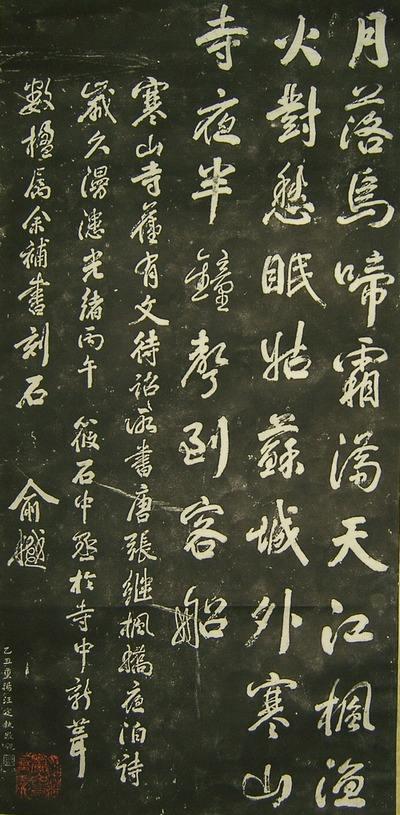 月落烏啼霜滿天江楓漁
火對愁眠姑蘇城外寒山
寺夜半鐘聲到客船
寒山寺舊有文待詔所書唐張継楓橋夜泊詩
歲久漫漶光緒丙午筱石中丞於寺中新葺
數楹属余補書刻石
俞樾